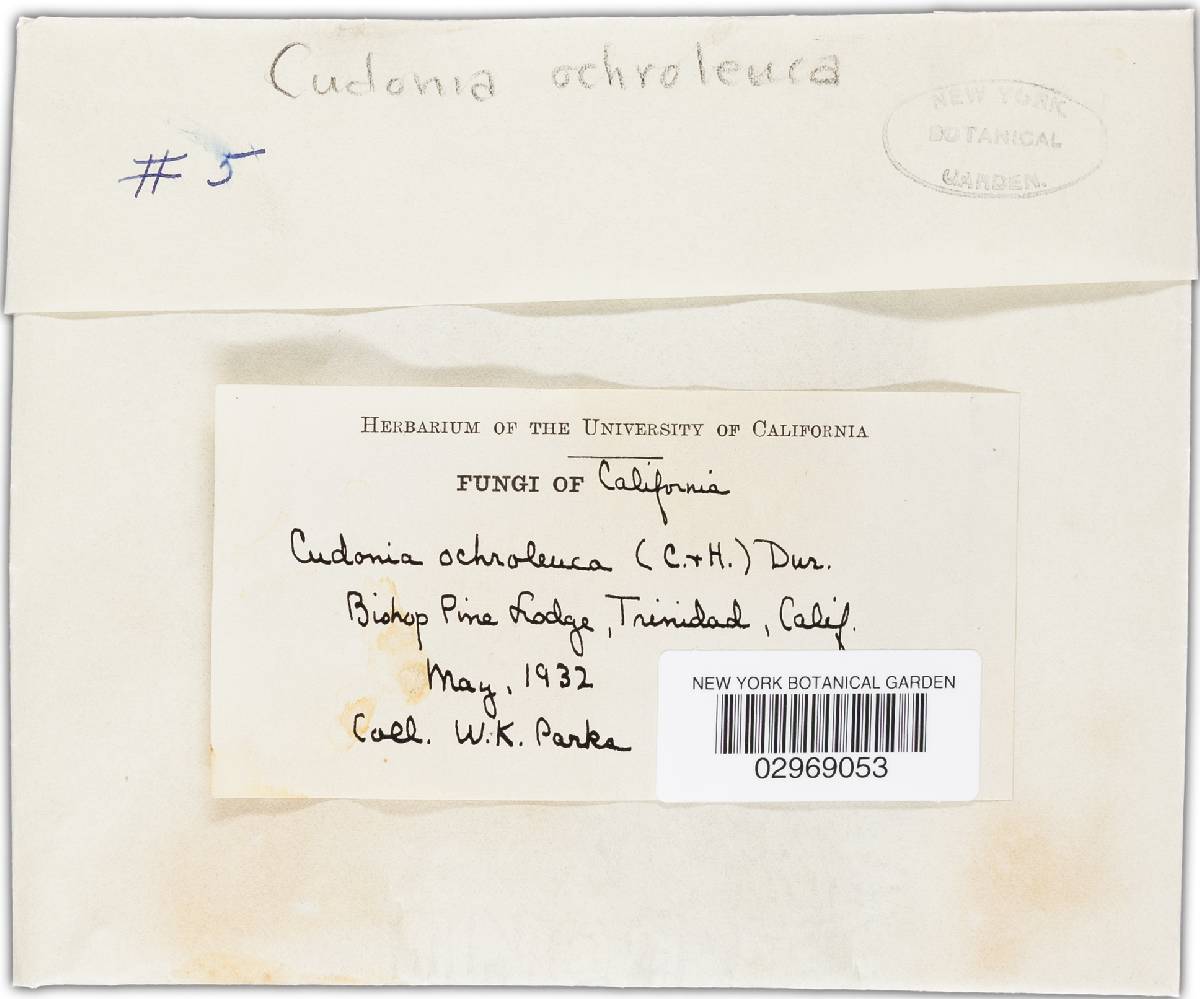 Cudonia ochroleuca
NEW YORK
BOTANICAL
GARDEN.
# 5
HERBARIUM OF THE UNIVERSITY OF CALIFORNIA
FUNGI OF California
Cudonia ochroleuca (C.+H.) Dur.
Bishop Pine Lodge, Trinidad, Calif.
May, 1932
Coll. W.K. Parks
NEW YORK BOTANICAL GARDEN
02969053